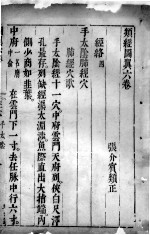 類經圖翼六卷
張介賓類正
經絡四
手太陰肺經穴
肺經穴歌
手太陰經十一穴中府雲門天府列俠白尺澤
孔最存列缺經渠太淵涉魚際直出大指端內
側少商如韭葉
中府
在雲門下一寸去任脉中行六寸